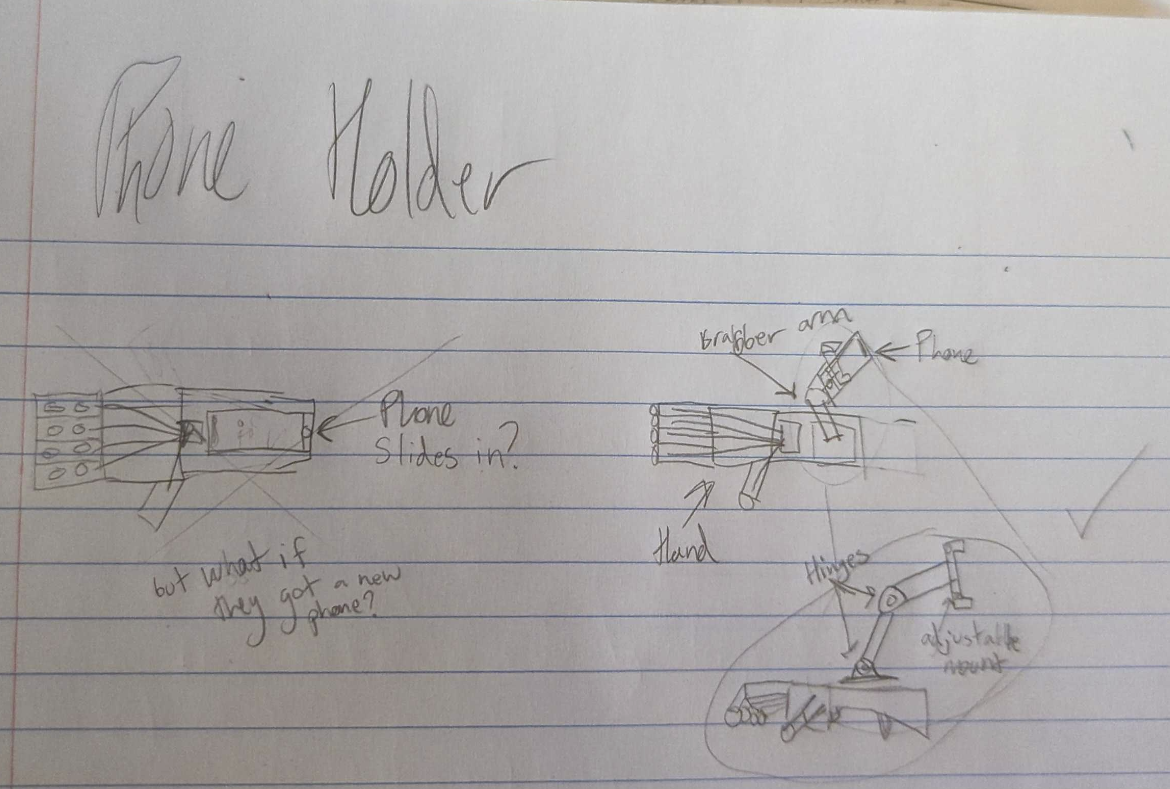 Phone Holder
Phone
Slides in?
but what if
they got a new
phone?
Grabber arm
Phone
Hand
Hinges
adjustable
mount